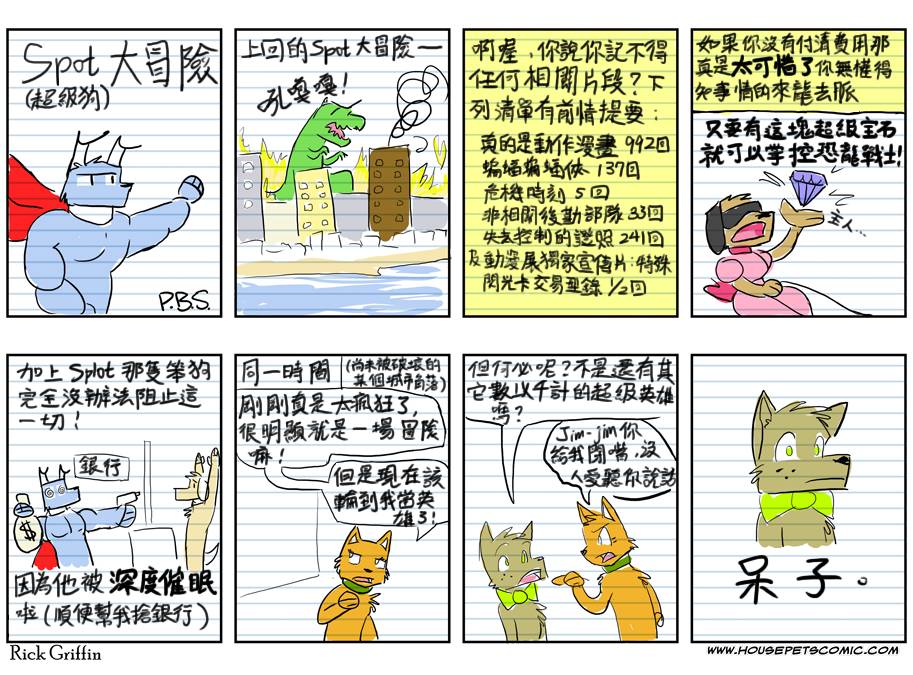 Spot 大冒險
(超級狗)
P.B.S.
上回的Spot 大冒險—
吼嘎嘎!
啊喔,你說你記不得
任何相關片段?下
列清單有前情提要:
真的是動作漫畫 992回
蝙蝠蝙蝠俠 137回
危機時刻 5回
非相關後勤部隊 33回
失去控制的證照 241回
及動漫展獨家宣傳片:特殊
閃光卡交易型錄 1/2回
如果你沒有付清費用那
真是太可惜了你無權得
知事情的來龍去脈
只要有這塊超級宝石
就可以掌控恐龍戰士!
主人...
加上 Spot 那隻笨狗
完全沒辦法阻止這
一切!
銀行
$
因為他被 深度催眠
啦 (順便幫我搶銀行)
同一時間
(尚未被破壞的
某個城市角落)
剛剛真是太瘋狂了,
很明顯就是一場冒險
嘛!
但是現在該
輪到我當英
雄了!
但何必呢?不是還有其
它數以千計的超級英雄
嗎?
Jim-jim你
給我閉嘴,沒
人愛聽你說話
呆子。
Rick Griffin
WWW.HOUSEPETSCOMIC.COM